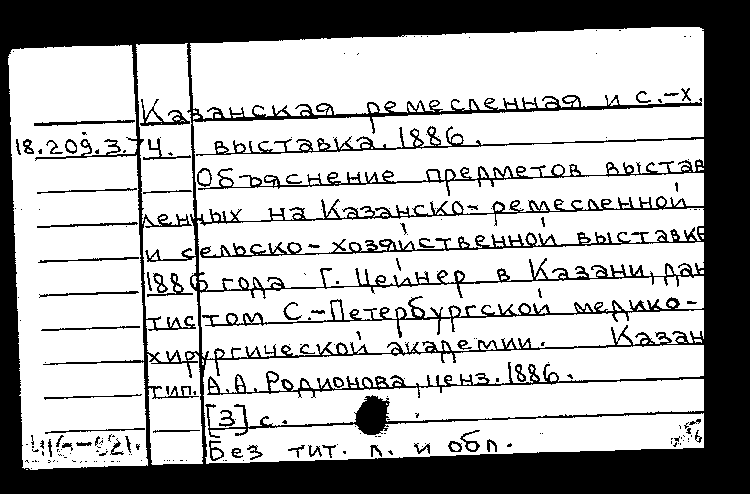 Казанская ремесленная и с.-х.
18.209.3.74. выставка. 1886.
Объяснение предметов выстав
ленных на Казанско-ремесленной
и сельско-хозяйственной выставке
1886 года Г. Цейнер в Казани, дан
тистом С.-Петербургской медико-
хирургической академии. Казан
тип. А.А. Родионова, ценз. 1886.
[3] с.
Без тит. л. и обл.